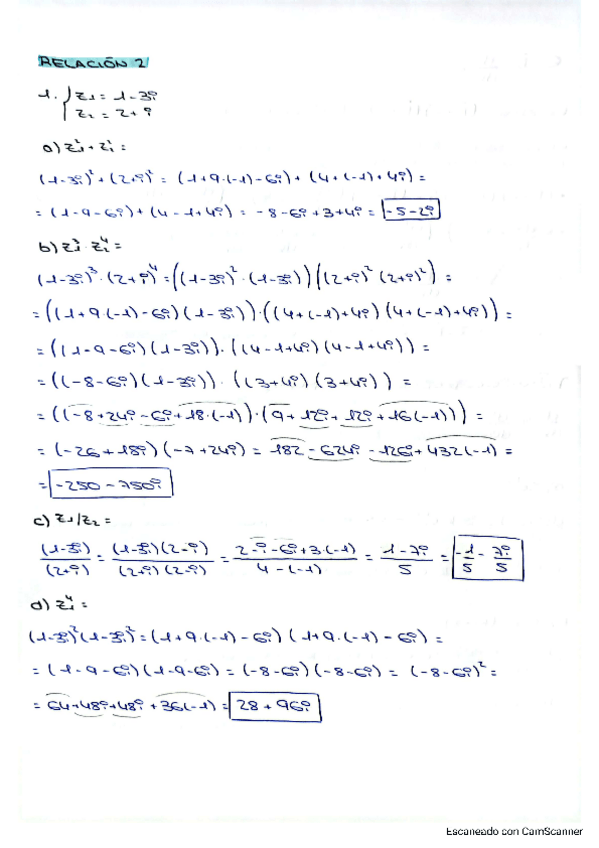 RELACIÓN 2
1. { z₁ = 1-3i
z₂ = 2+i
a) z₁² + z₂² =
(1-3i)² + (2+i)² = (1+9·(-1)-6i) + (4+(-1)+4i) =
= (1-9-6i) + (4-1+4i) = -8-6i+3+4i = -5-2i
b) z₁³ · z₂⁴ =
(1-3i)³ · (2+i)⁴ = ((1-3i)² · (1-3i)) ((2+i)² (2+i)²) =
= ((1+9(-1)-6i)(1-3i)) · ((4+(-1)+4i)(4+(-1)+4i)) =
= ((1-9-6i)(1-3i)) · ((4-1+4i)(4-1+4i)) =
= ((-8-6i)(1-3i)) · ((3+4i)(3+4i)) =
= ((-8+24i-6i+18·(-1)) · (9+12i+12i+16(-1))) =
= (-26+18i)(-7+24i) = 182-624i-126i+432(-1) =
= -250-750i
c) z₁/z₂ =
(1-3i)/(2+i) = (1-3i)(2-i)/(2+i)(2-i) = 2-i-6i+3·(-1)/4-(-1) = 1-7i/5 = -1/5 - 7i/5
d) z₁⁴ =
(1-3i)²(1-3i)² = (1+9·(-1)-6i)(1+9·(-1)-6i) =
= (1-9-6i)(1-9-6i) = (-8-6i)(-8-6i) = (-8-6i)² =
= 64+48i+48i+36(-1) = 28+96i
Escaneado con CamScanner